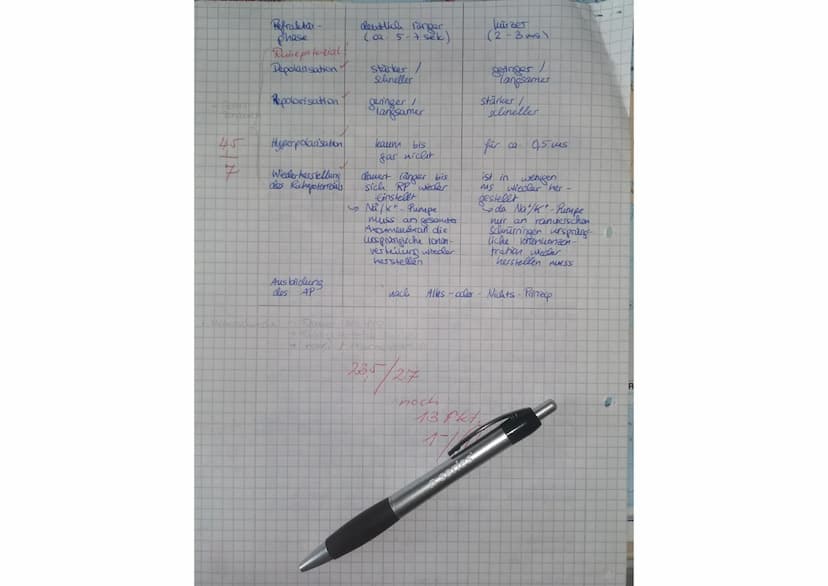 Refraktär- deutlich länger kürzer
phase (ca 5-7 sek) (2-3 ms)
Ruhepotential
Depolarisation stärker / geringer /
schneller langsamer
Repolarisation geringer / stärker /
langsamer schneller
Hyperpolarisation kaum bis für ca 0,5 ms
gar nicht
45
7
Wiederherstellung dauert länger bis ist in wenigen
des Ruhepotentials sich RP wieder ms wieder her-
einstellt gestellt
↳ Na⁺/K⁺-Pumpe ↳ da Na⁺/K⁺-Pumpe
muss an gesamter nur an ranvierschen
Axonmembran die Schnürringen ursprüng-
ursprüngliche Ionen- liche Ionenkonzen-
verteilung wieder tration wieder
herstellen herstellen muss
Ausbildung
des AP nach Alles-oder-Nichts-Prinzip
23,5/27
noch
13 Pkt.
1-/